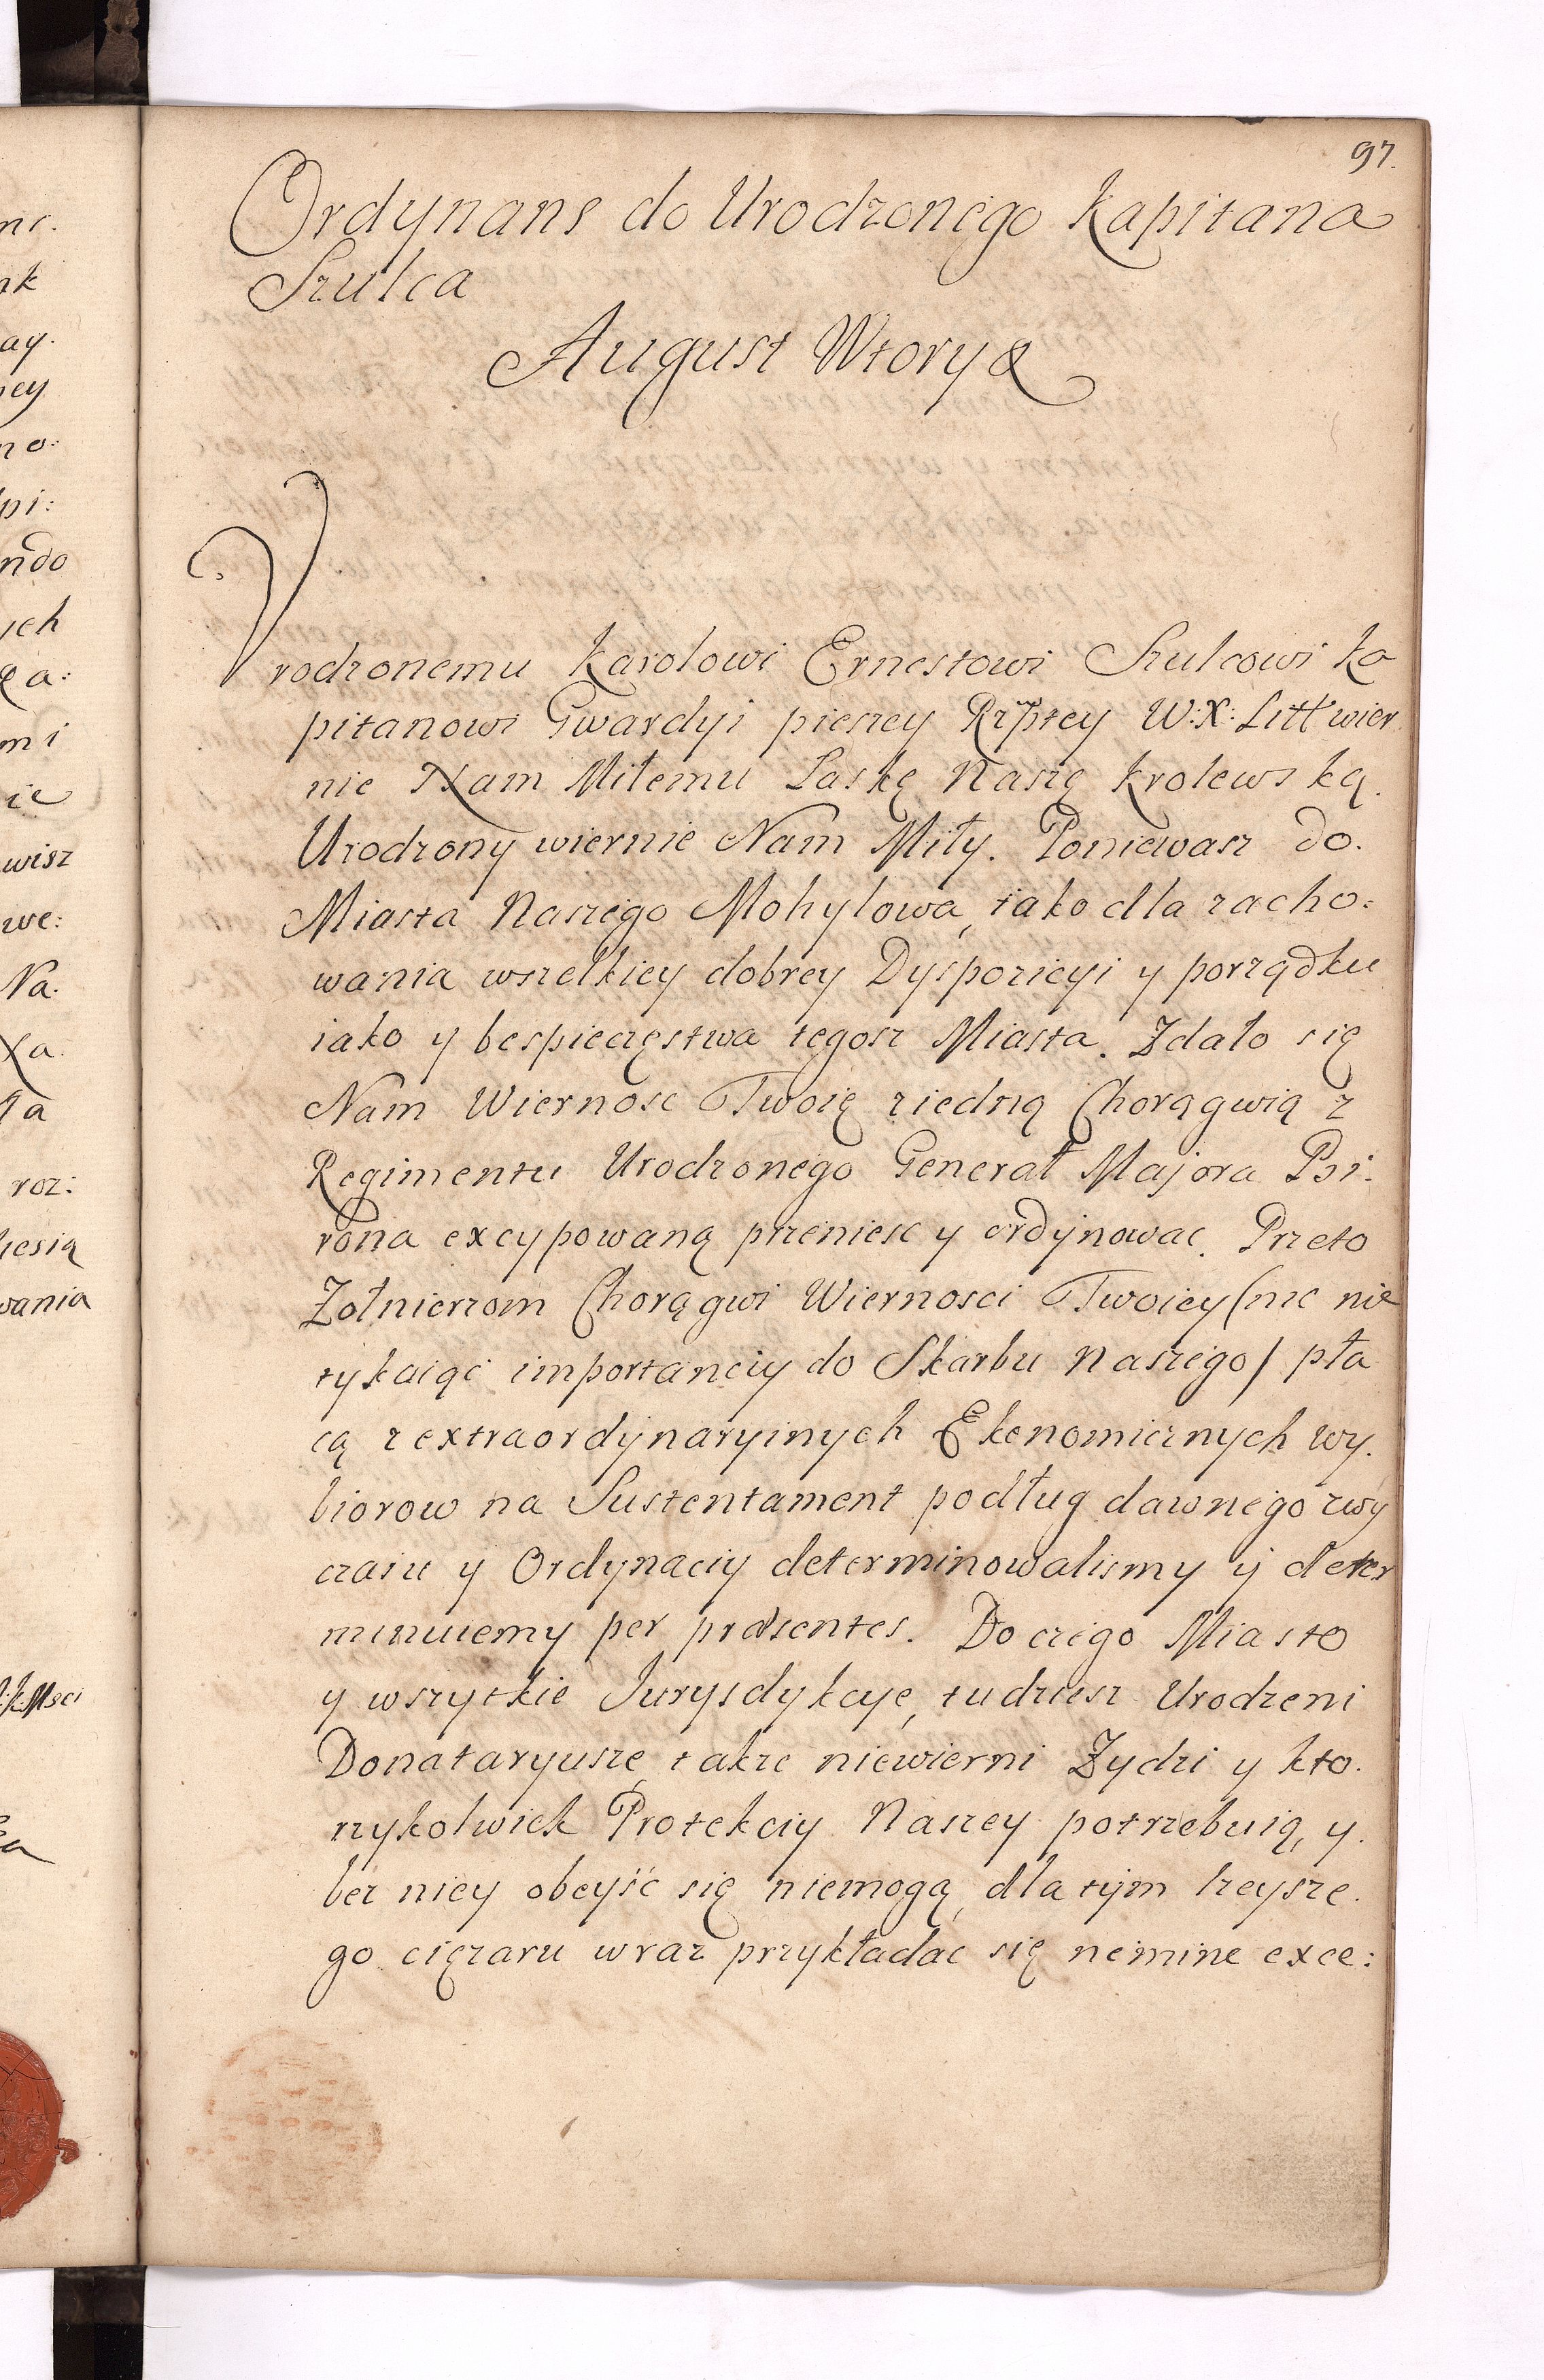 97.
Ordynans do Urodzonego Kapitana
Szulca
August Wtory &
Vrodzonemu Karolowi Ernestowi Szulcowi Ka
pitanowi Gwardyi pieszey Rzptey W:X: Litt wier
nie Nam Miłemu Łaskę Naszę Krolewską.
Urodzony wiernie Nam Miły. Poniewasz do.
Miasta Naszego Mohylowa, tako dla zacho:
wania wszelkiey dobrey Dyspozicyi y porządku
iako y bespieczęstwa tegosz Miasta. Zdało się
Nam Wiernosc Twoię ziedną Chorągwią z
Regimentu Urodzonego Generał Majora Bi:
rona excypowaną przeniesc y ordynowac. Przeto
Zołnierzom Chorągwi Wiernosci Twoiey (nic nie
tykaiąc importanciy do Skarbu Naszego) pła
cą z extraordynaryinych Ekonomicznych wy.
biorow na Sustentament podług dawnego zwy
czaiu y Ordynaciy determinowalismy y deter
minuiemy per præsentes. Do czego Miasto
y wszytkie Jurysdykcye, tudziesz Urodzeni
Donataryusze, takze niewierni Zydzi y kto.
rzykolwiek Protekciy Naszey potrzebuią, y.
bez niey obeyść się niemogą, dla tym lzeysze.
go cięzaru wraz przykładać się nemine exce:
ni.
nk
ay.
ey
no:
pi:
ndo
ych
mi
ie
wisz
we:
Na.
Xa.
ła
roz:
iesią
wania